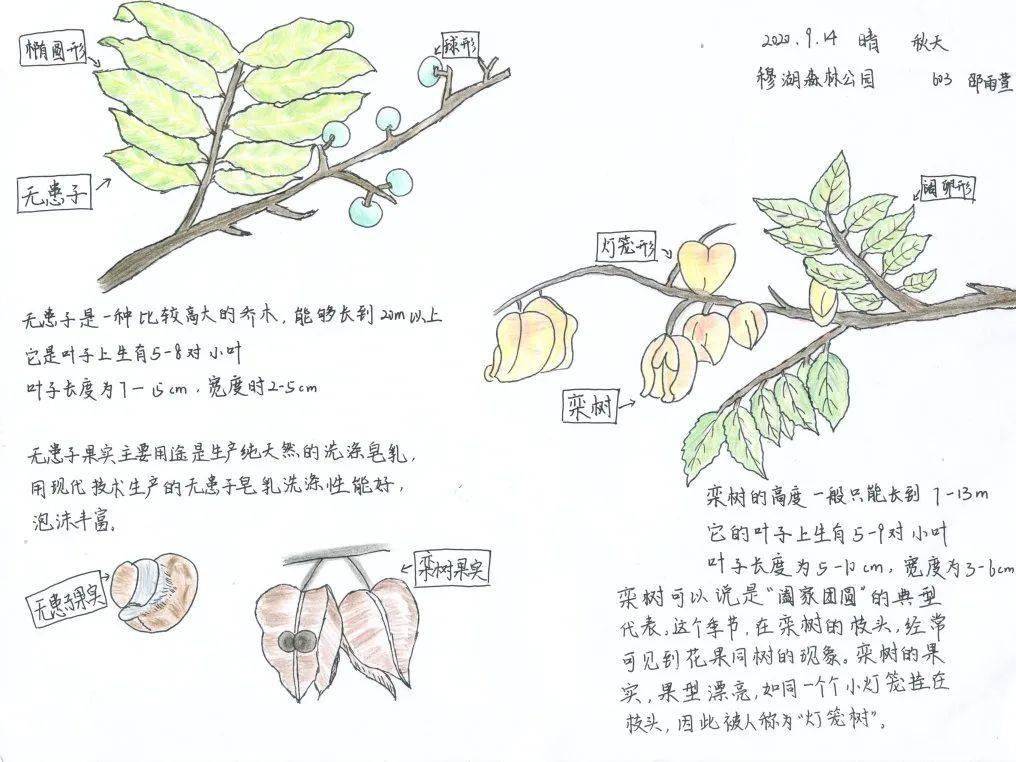 2020.9.14 晴 秋天
穆湖森林公园 603 邵雨萱
椭圆形
球形
无患子
无患子是一种比较高大的乔木，能够长到20m以上
它是叶子上生有5-8对小叶
叶子长度为7-15cm，宽度时2-5cm
无患子果实主要用途是生产纯天然的洗涤皂乳，
用现代技术生产的无患子皂乳洗涤性能好，
泡沫丰富。
无患子果实
栾树果实
阔卵形
灯笼形
栾树
栾树的高度一般只能长到7-13m
它的叶子上生有5-9对小叶
叶子长度为5-10cm，宽度为3-6cm
栾树可以说是“阖家团圆”的典型
代表，这个季节，在栾树的枝头，经常
可见到花果同树的现象。栾树的果
实，果型漂亮，如同一个个小灯笼挂在
枝头，因此被人称为“灯笼树”。